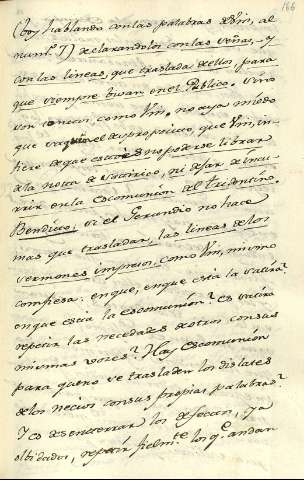 166
(voy hablando con las palabras de Vm, al
num.º 7) declarandolos con las señas, y
con las lineas, que traslada dellos, para
que siempre vivan en el Publico. Sino
son tan como Vm. no aya miedo
que el desproposito, que Vm, in-
fiere de que no poderse librar
de la nota de satirico, ni dejar de incu-
rrir en la Escomunion del tridentino.
Bendito, si el Gerundio no hace
mas que trasladar las lineas de los
sermones impresos, como Vm, mismo
confiesa: enque, enque està la satira?
enque està la escomunion? es satira
repetir las necedades de otros con sus
mismas voces? Hay Escomunion
para que no se trasladen los dislates
de los necios con sus propias palabras?
Y es desenterrar los de focan, ya
olbidados, repetir fielm.te los q.e andan